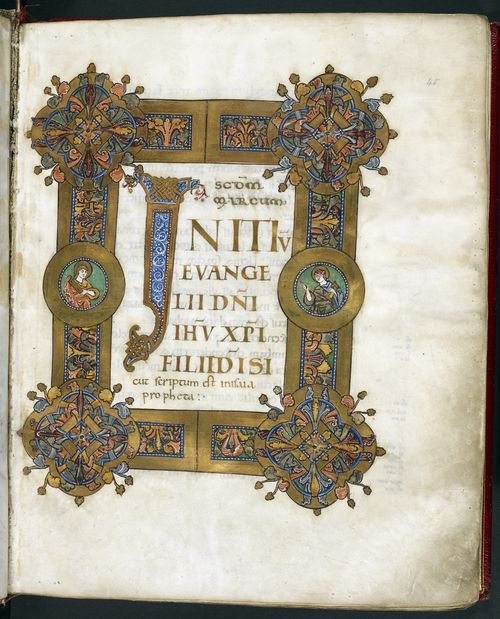 45
SC̄DM̄
MARCUM
INITIV̄
EVANGE
LII DN̄I
IHV̄ XP̄I
FILII DĪ SI
cut scriptum est inisaia
propheta: